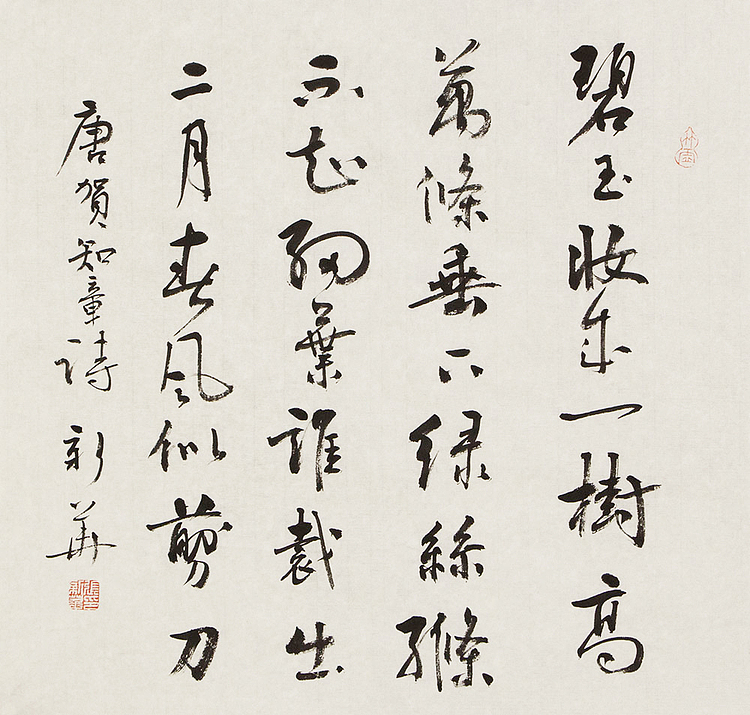 碧玉妝成一樹高
萬條垂下綠絲縧
不知細葉誰裁出
二月春風似剪刀
唐賀知章詩 新華